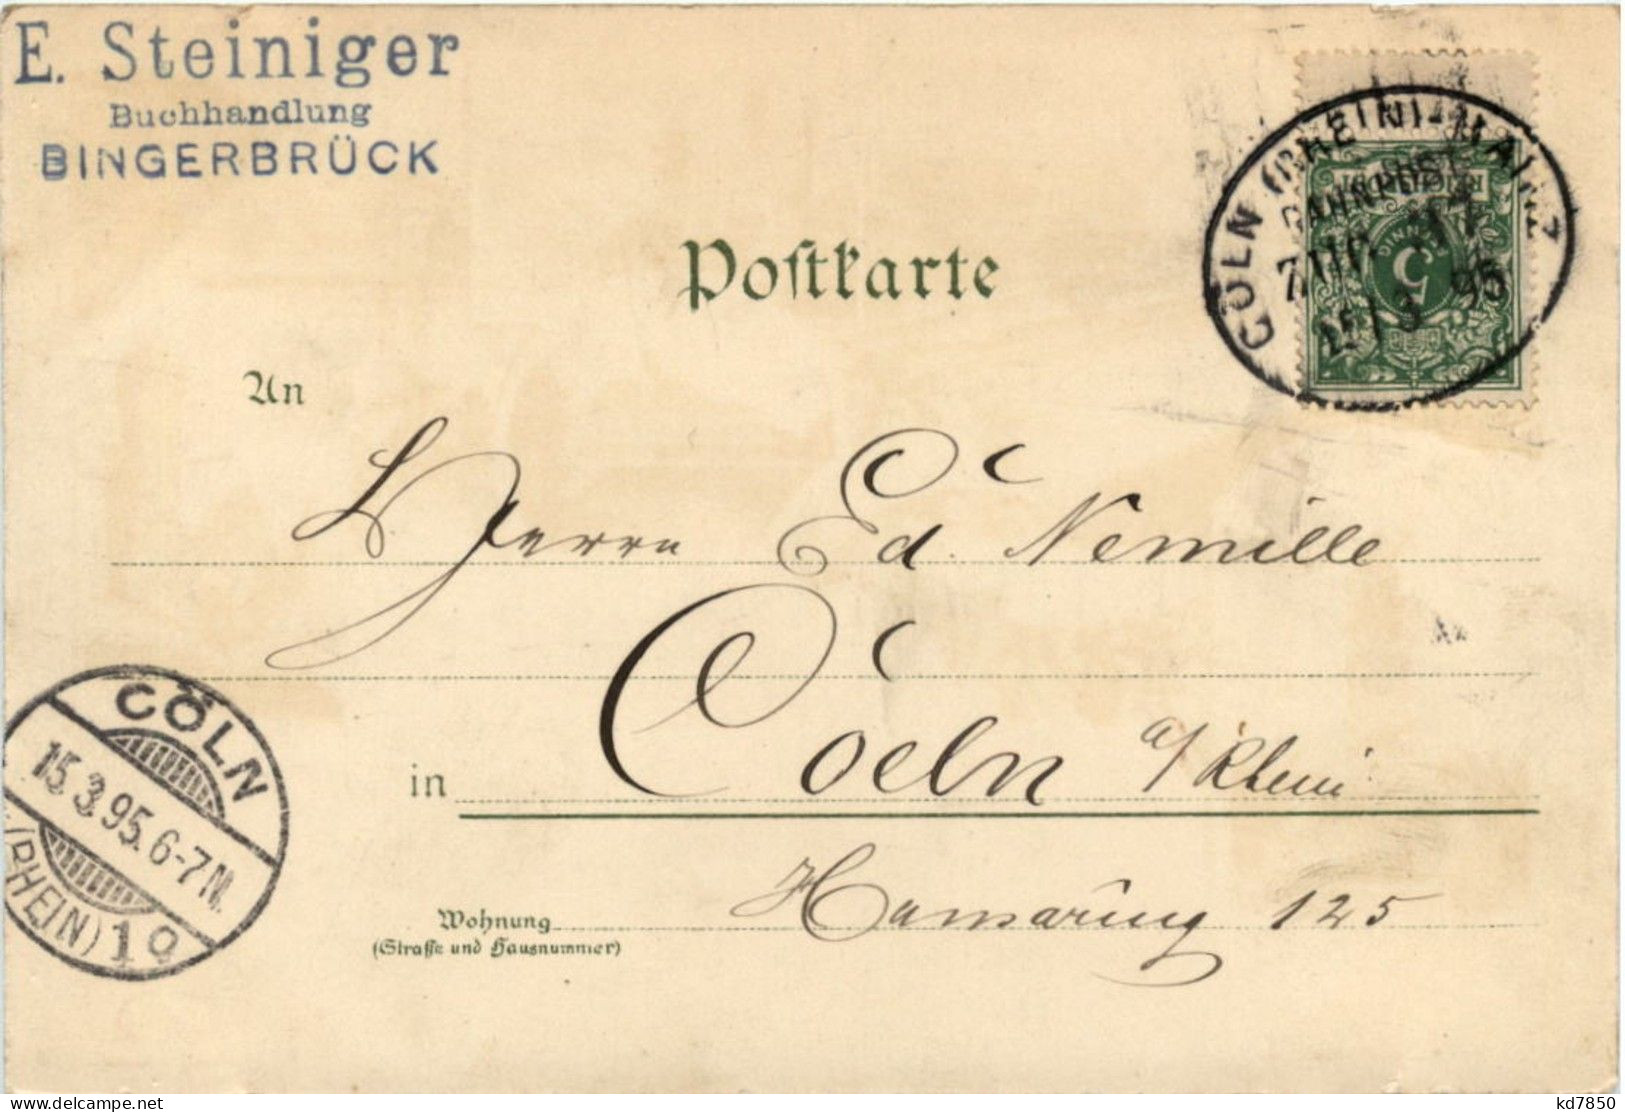 E. Steiniger
Buchhandlung
BINGERBRÜCK
CÖLN (RHEIN)-MAINZ
BAHNPOST
ZUG
15/3 95
REICHSPOST
5
Postkarte
An
Herrn Ed. Nemille
in Coeln a/Rhein
Wohnung
(Straße und Hausnummer)
Hansaring 125
CÖLN
15.3.95.6-7N.
(RHEIN)
kd7850